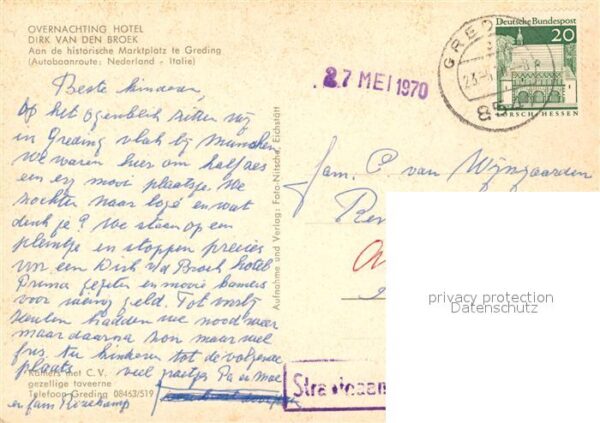 OVERNACHTING HOTEL
DIRK VAN DEN BROEK
Aan de historische Marktplatz te Greding
(Autobaanroute: Nederland - Italie)
Beste kinderen,
Op het ogenblik zitten wij
in Greding vlak bij Munchen
We waren hier om half zes
een erg mooi plaatsje. We
zochten naar logé en wat
denk je? We staan op een
pleintje en stoppen precies
voor een Dirk v/d Broek hotel
Prima gegeten en mooie kamers
voor weinig geld. Tot
hadden we nood weer
maar daarna zon maar wel
fris. tu kinderen tot de volgende
plaats veel groetjes Pa en Moe
Kamers met C.V.
gezellige taveerne
Telefoon Greding 08463/519
en fam
Aufnahme und Verlag: Foto-Nitsche, Eichstätt
27 MEI 1970
GRED
Deutsche Bundespost
20
LORSCH-HESSEN
fam. C. van Wijngaarden
Straatnaam
privacy protection
Datenschutz